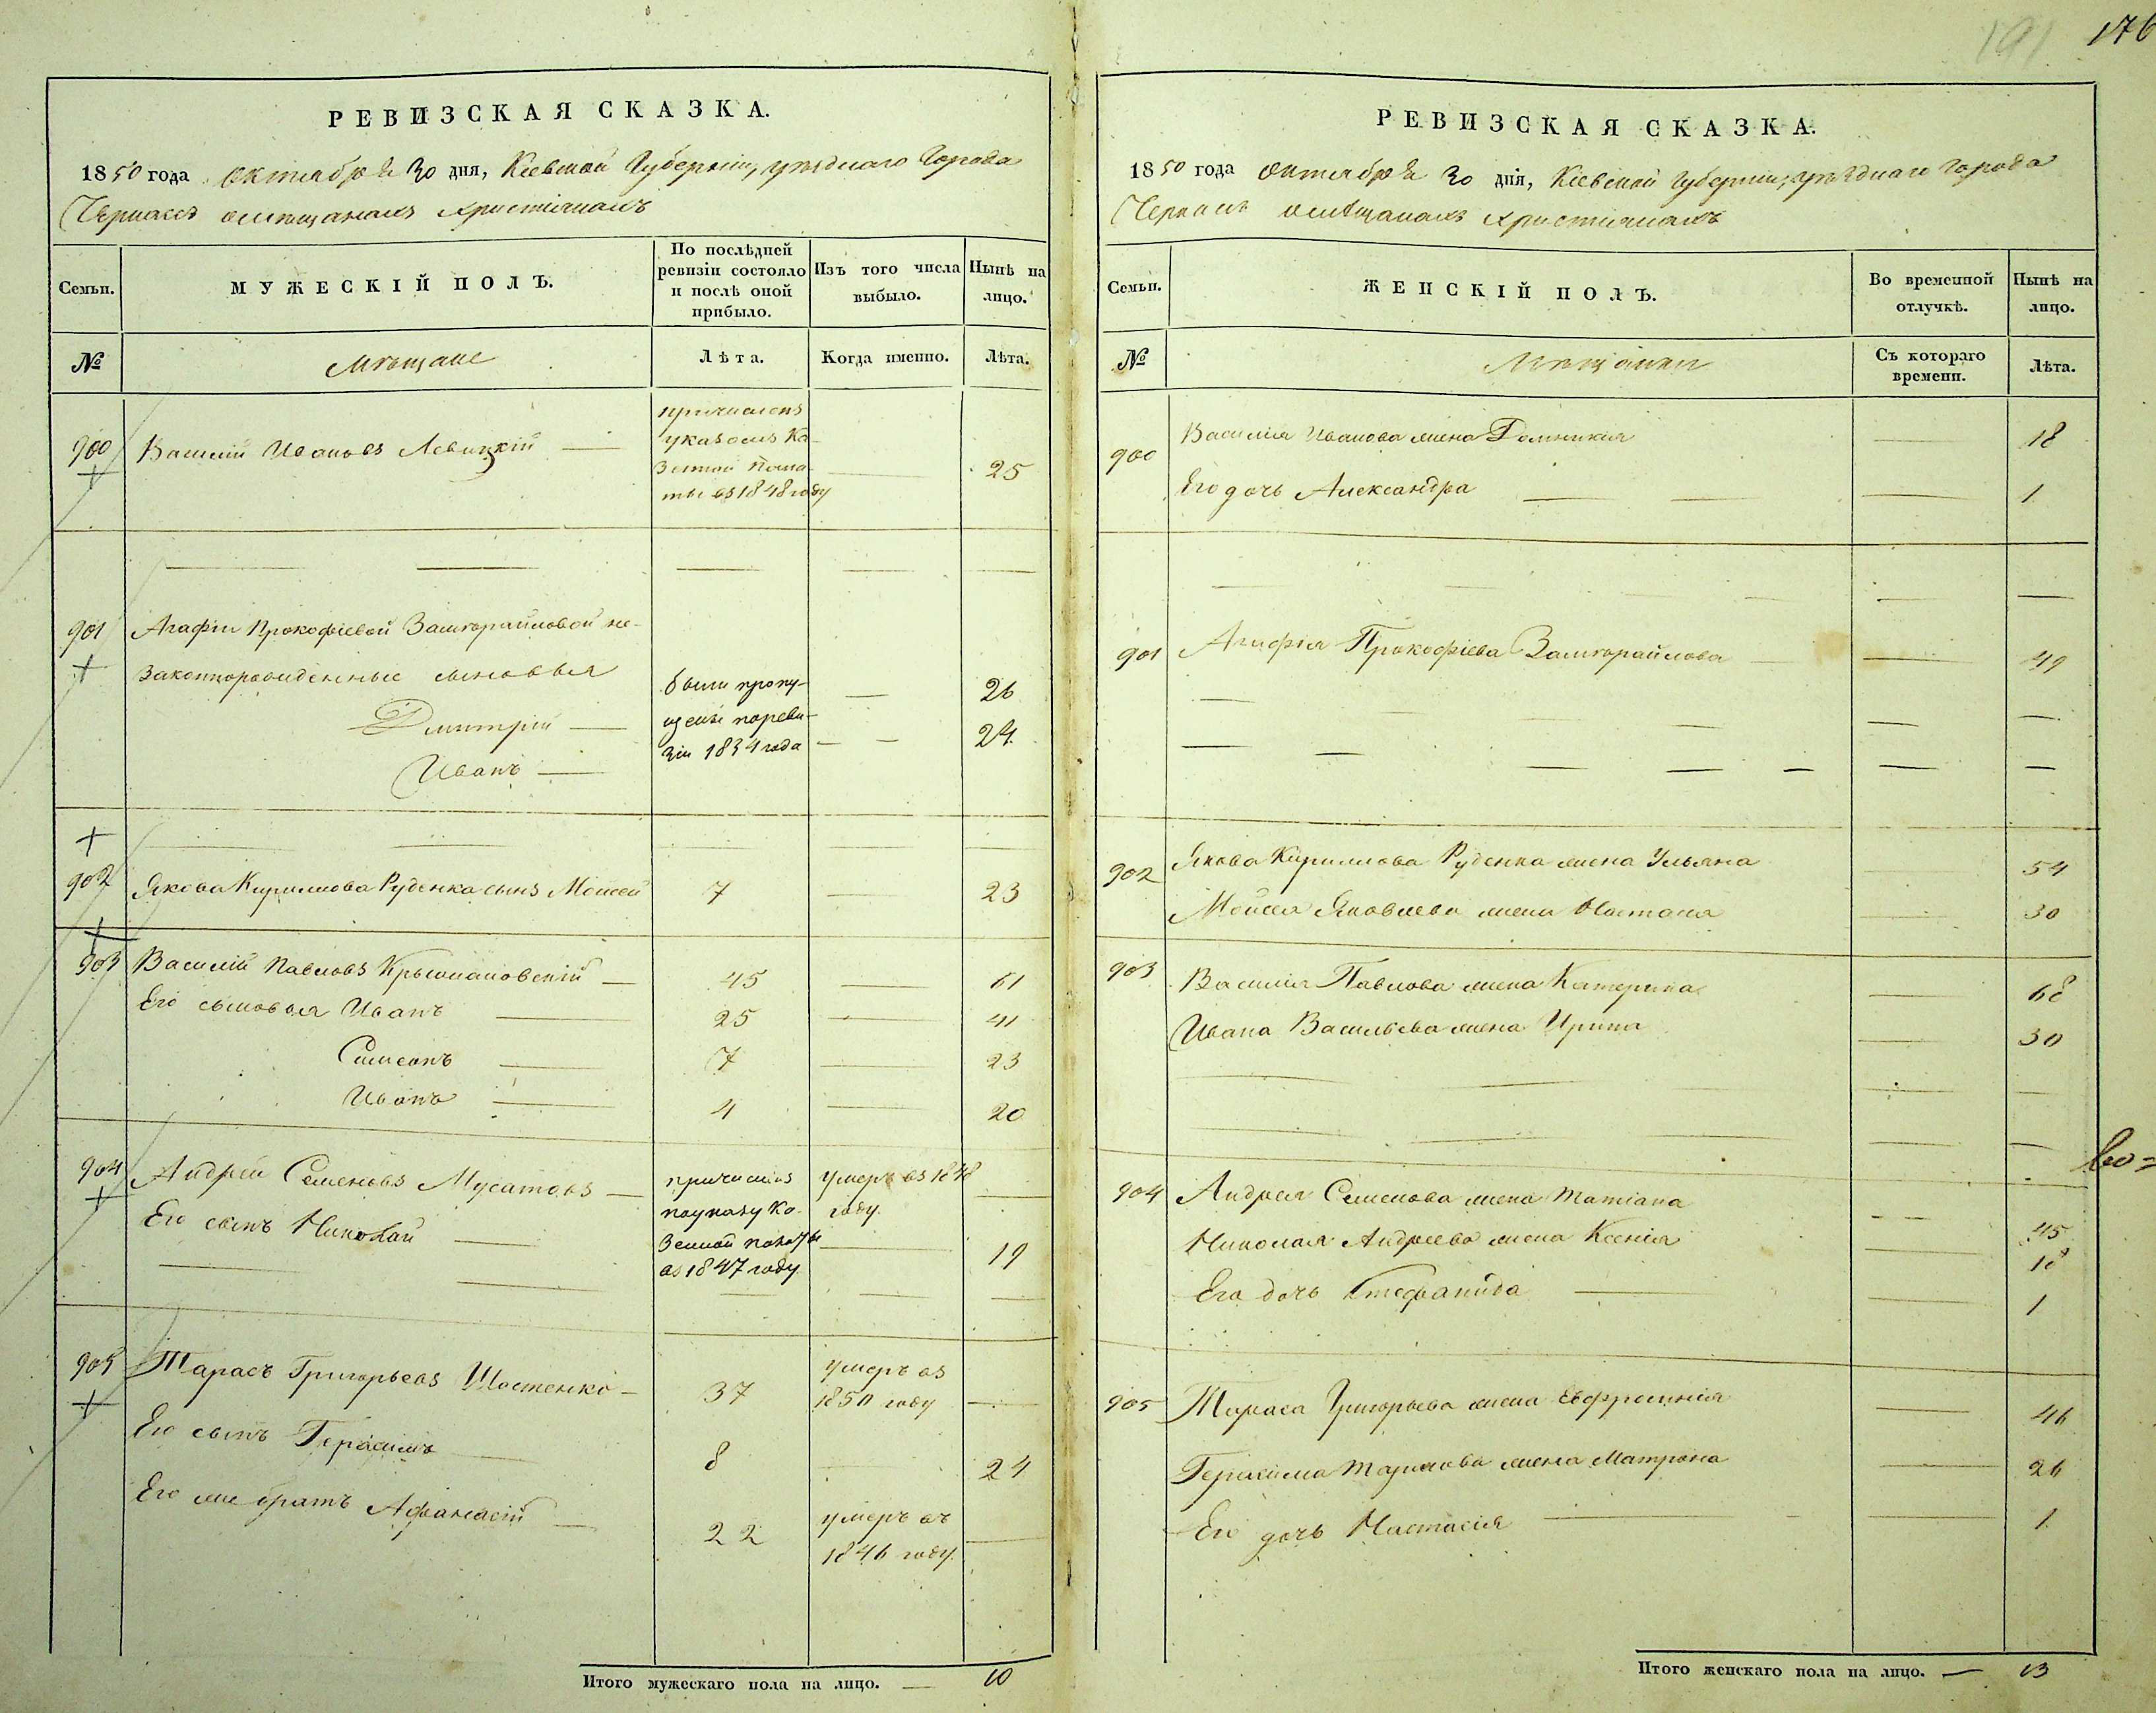 191 176
РЕВИЗСКАЯ СКАЗКА.
1850 года октября 30 дня, Кіевской Губерніи, уѣзднаго Города
Черкасъ о мѣщанахъ христіянахъ
Семьи.
МУЖЕСКІЙ ПОЛЪ.
По послѣдней
ревизіи состояло
и послѣ оной
прибыло.
Изъ того числа
выбыло.
Нынѣ на
лицо.
№
Мѣщане
Лѣта.
Когда именно.
Лѣта.
900
Василій Ивановъ Левицкій
причисленъ
указомъ Ка-
зенной Пала-
ты въ 1848 году
25
901
Агафіи Прокофіевой Замгорайловой не-
законнорожденные сыновья
Дмитрій
Иванъ
были пропу-
щены по реви-
зіи 1834 года
26
24
902
Якова Кирилова Руденка сынъ Моисей
7
23
903
Василій Павловъ Крыжановскій
45
61
Его сыновья Иванъ
25
41
Симеонъ
7
23
Иванъ
4
20
904
Андрей Семеновъ Мусатовъ
Его сынъ Николай
причисленъ
по указу Ка-
зенной палаты
въ 1847 году
умеръ въ 1848
году
19
905
Тарасъ Григорьевъ Шостенко
37
умеръ въ
1850 году
Его сынъ Герасимъ
8
24
Его же братъ Афанасій
22
умеръ въ
1846 году
Итого мужескаго пола на лицо. — 10
РЕВИЗСКАЯ СКАЗКА.
1850 года октября 30 дня, Кіевской Губерніи, уѣзднаго Города
Черкасъ о мѣщанахъ христіянахъ
Семьи.
ЖЕНСКІЙ ПОЛЪ.
Во временной
отлучкѣ.
Нынѣ на
лицо.
№
Мѣщанки
Съ котораго
времени.
Лѣта.
900
Василія Иванова жена Домникія
18
Его дочь Александра
1
901
Агафія Прокофіева Замгорайлова
49
902
Якова Кирилова Руденка жена Ульяна
54
Моисея Яковлева жена Настасія
30
903
Василія Павлова жена Катерина
68
Ивана Васильева жена Ирина
30
904
Андрея Семенова жена Татіана
45
Николая Андреева жена Ксенія
18
Его дочь Стефанида
1
905
Тараса Григорьева жена Евфросинія
46
Герасима Тарасова жена Матрона
26
Его дочь Настасія
1
Итого женскаго пола на лицо. — 13